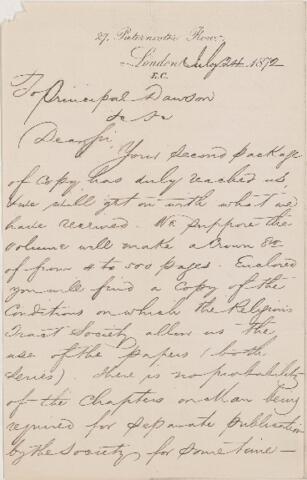 27, Paternoster Row,
London July 24 1872
E.C.
To Principal Dawson
&c &c
Dear Sir,
Your second package
of copy has duly reached us
we shall get on with what we
have received. We suppose the
volume will make a Crown 8o
of from 4 to 500 pages. Enclosed
you will find a Copy of the
Conditions on which the Religious
Tract Society allow us the
use of the papers (both
series). There is no probability
of the Chapters on Man being
required for separate publication
by the Society for some time —